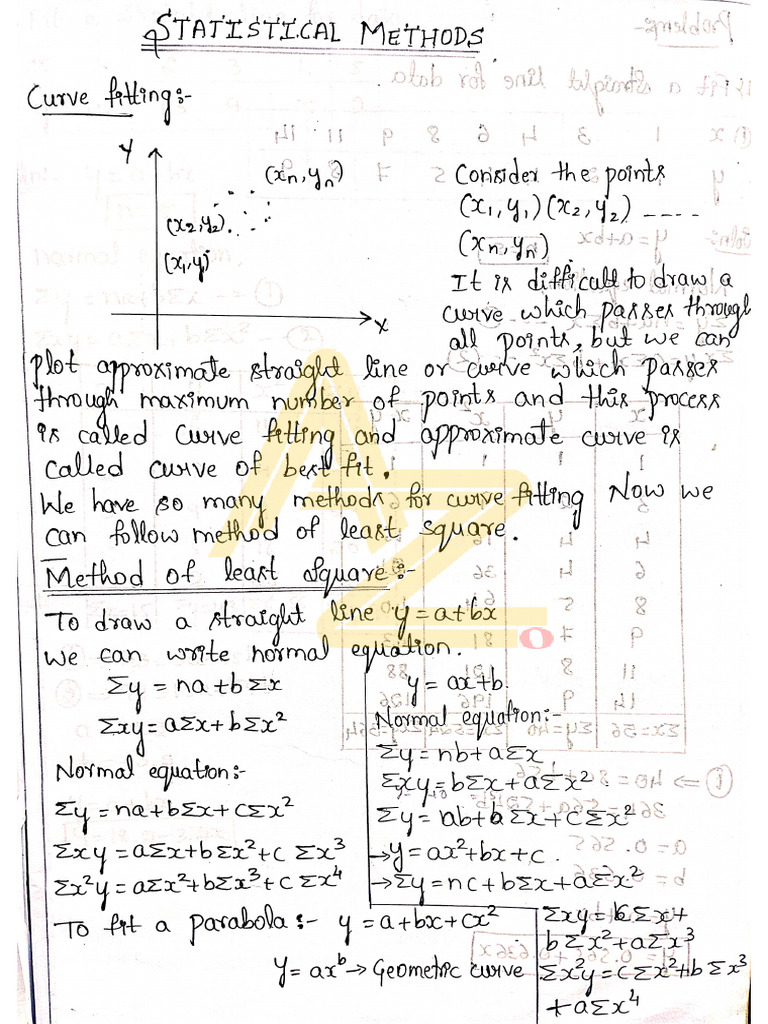 STATISTICAL METHODS
Curve fitting:-
Y
(xn, yn)
(x2, y2)
(x1, y)
X
Consider the points
(x1, y1) (x2, y2) ----
(xn, yn)
It is difficult to draw a
curve which passes through
all points, but we can
plot approximate straight line or curve which passes
through maximum number of points and this process
is called curve fitting and approximate curve is
called curve of best fit.
We have so many methods for curve fitting Now we
can follow method of least square.
Method of least square:-
To draw a straight line y = a+bx
we can write normal equation.
Σy = na + bΣx
Σxy = aΣx + bΣx²
Normal equation:-
Σy = na + bΣx + cΣx²
Σxy = aΣx + bΣx² + cΣx³
Σx²y = aΣx² + bΣx³ + cΣx⁴
To fit a parabola:- y = a + bx + cx²
y = axᵇ → Geometric curve
y = ax + b.
Normal equation:-
Σy = nb + aΣx
Σxy = bΣx + aΣx²
Σx + cΣx²
→ y = ax² + bx + c.
→ Σy = nc + bΣx + aΣx²
Σx +
bΣx² + aΣx³
Σx²y = cΣx² + bΣx³
+ aΣx⁴
AZ